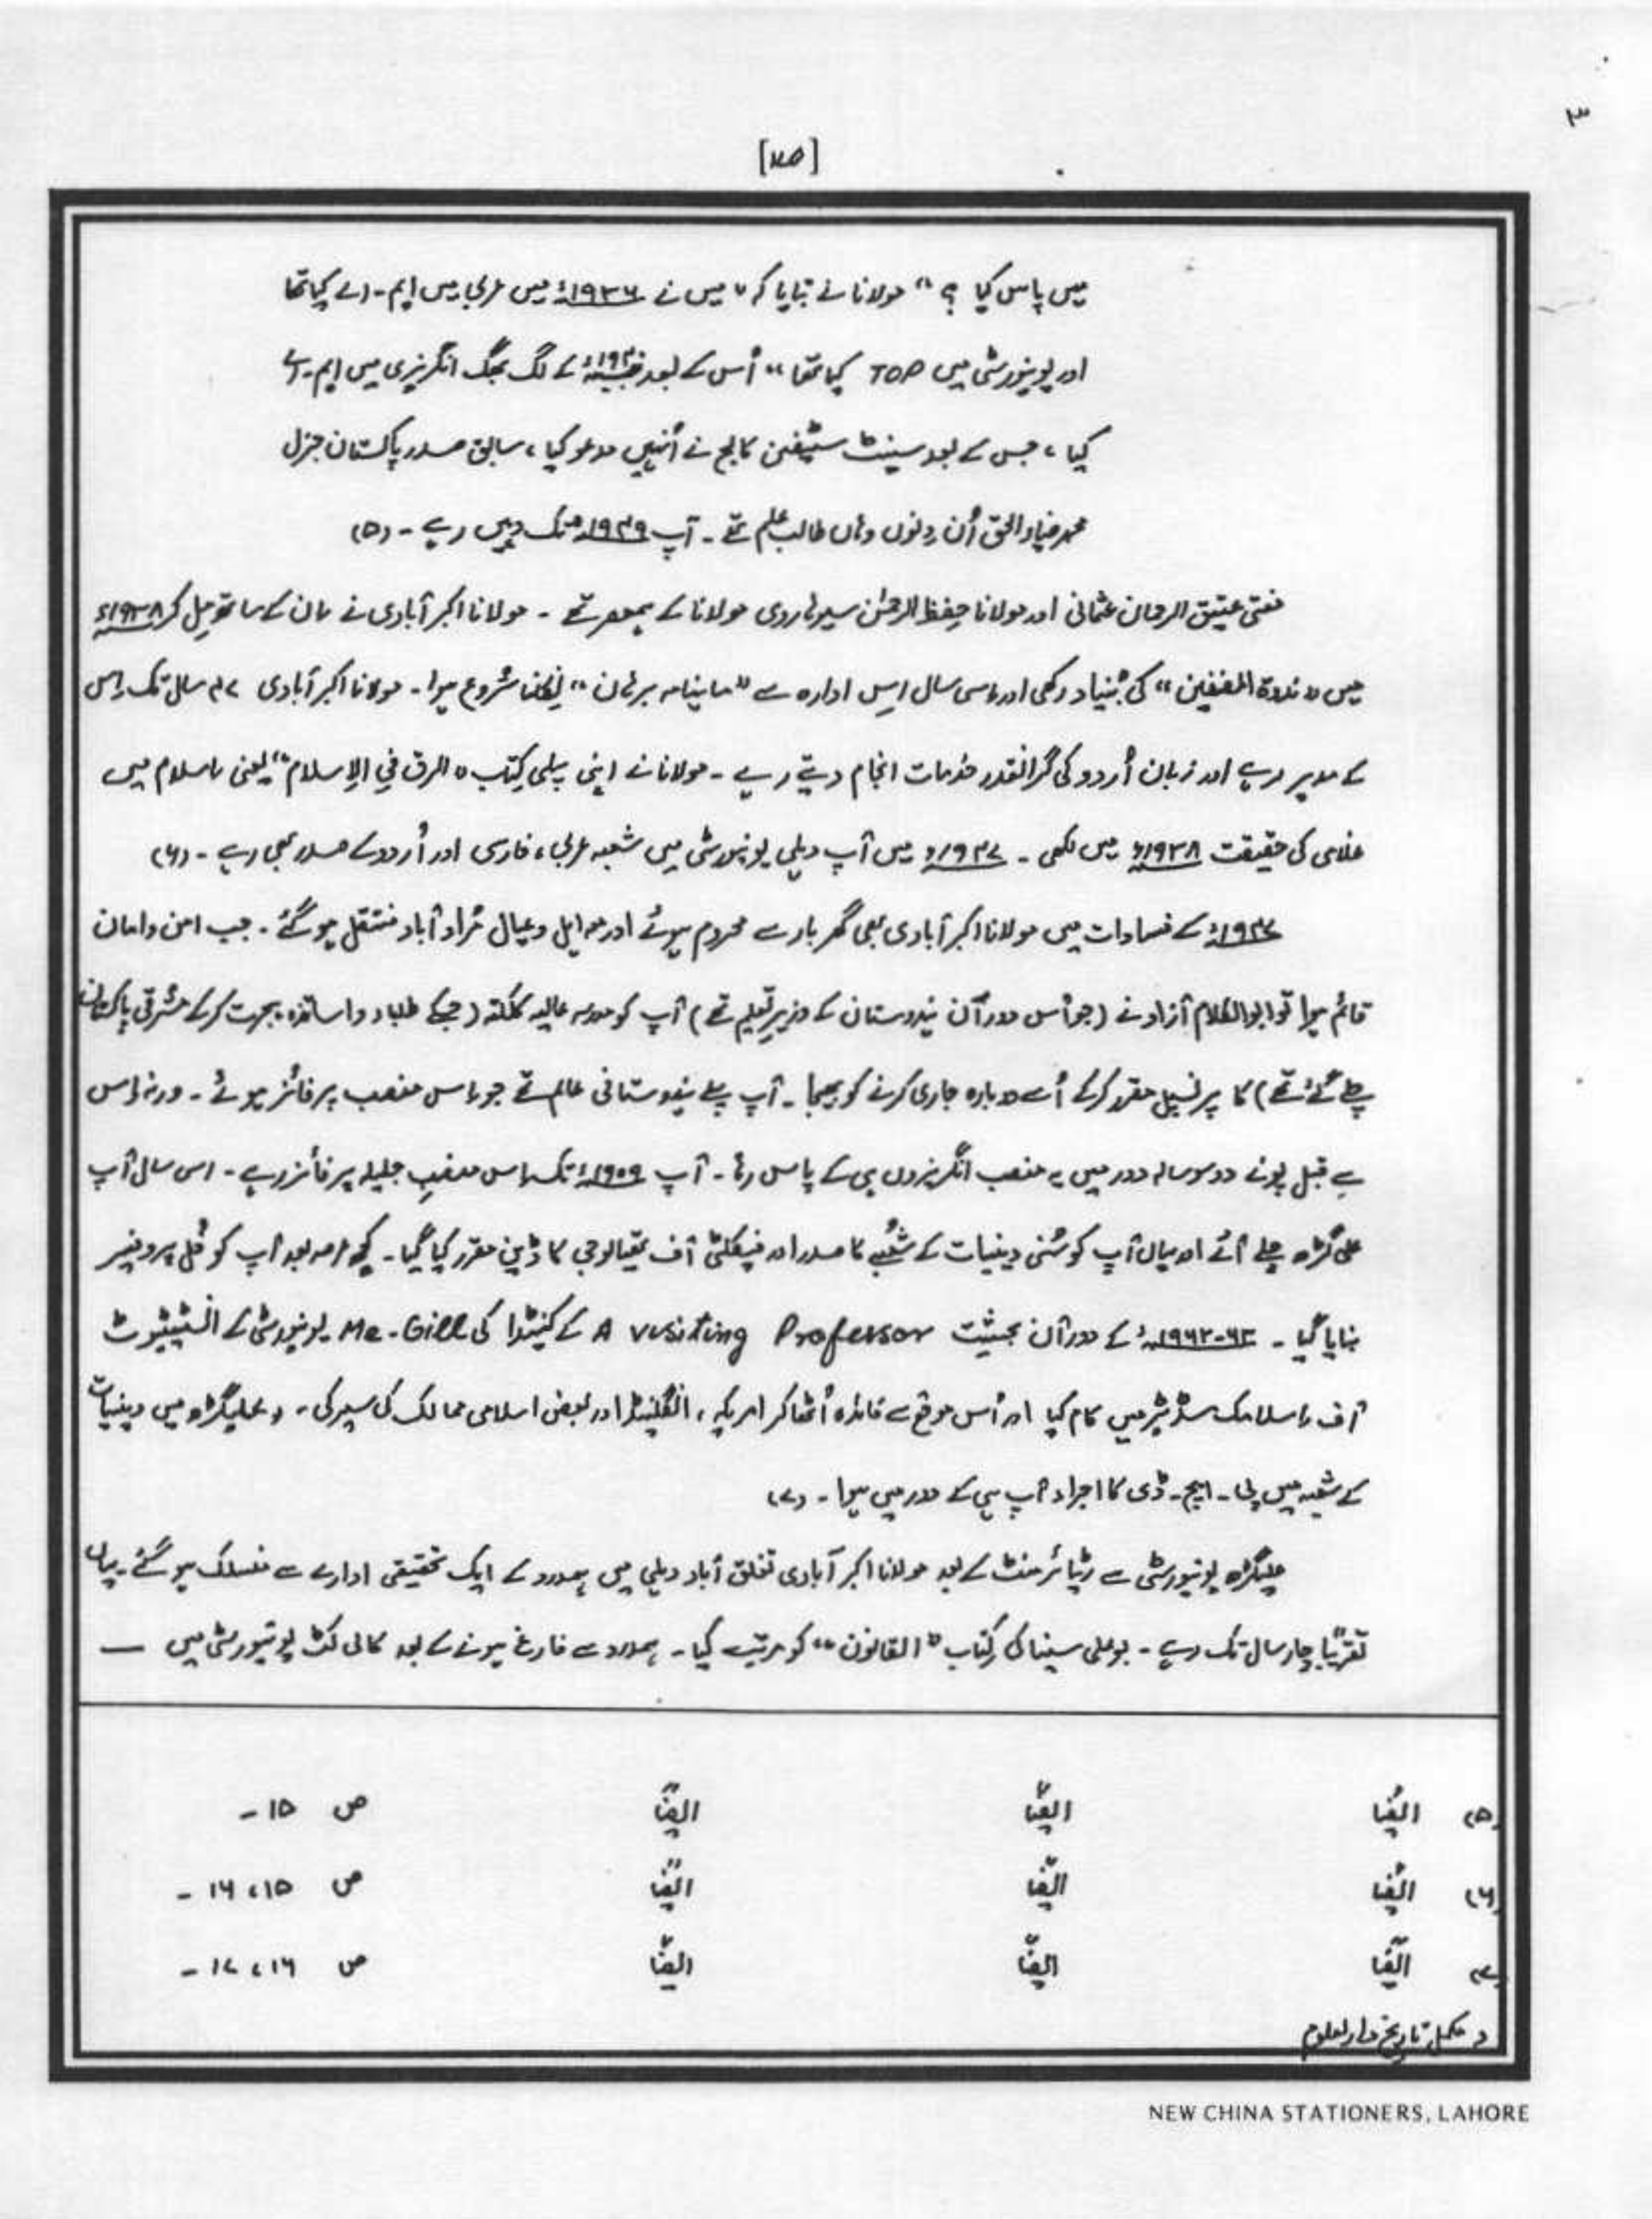 ۳
[۷۵]
میں پاس کیا ؟ “ مولانا نے بتایا کہ " میں نے ۱۹۳۶ء میں عربی میں ایم - اے کیا تھا
اور یونیورسٹی میں TOP کیا تھا “ اُس کے بعد ۱۹۴۰ء کے لگ بھگ انگریزی میں ایم - اے
کیا ، جس کے بعد سینٹ سٹیفن کالج نے اُنہیں مدعو کیا ، سابق صدر پاکستان جنرل
محمد ضیاء الحق اُن دنوں وہاں طالب علم تھے - آپ ۱۹۴۹ء تک وہیں رہے - (۵)
مفتی عتیق الرحمان عثمانی اور مولانا حِفظ الرحمٰن سیوہاروی مولانا کے ہمعصر تھے - مولانا اکبر آبادی نے ان کے ساتھ مِل کر ۱۹۳۸ء
میں " ندوۃ المصنفین “ کی بُنیاد رکھی اور اسی سال اِس ادارہ سے " ماہنامہ برہان “ نِکلنا شروع ہوا - مولانا اکبر آبادی ۴۷ سال تک اس
کے مدیر رہے اور زبان اُردو کی گرانقدر خدمات انجام دیتے رہے - مولانا نے اپنی پہلی کِتاب " الرق فی الاِسلام “ یعنی اسلام میں
غلامی کی حقیقت ۱۹۳۸ء میں لکھی - ۱۹۴۷ء میں آپ دہلی یونیورسٹی میں شعبہ عربی ، فارسی اور اُردو کے صدر بھی رہے - (۶)
۱۹۴۷ء کے فسادات میں مولانا اکبر آبادی بھی گھر بار سے محروم ہوئے اور مع اہل و عیال مُراد آباد منتقل ہو گئے - جب امن و امان
قائم ہوا تو ابوالکلام آزاد نے ( جو اُس دوران ہندوستان کے وزیر تعلیم تھے ) آپ کو مدرسہ عالیہ کلکتہ ( جسکے طلباء و اساتذہ ہجرت کرکے مشرقی پاکستان
چلے گئے تھے ) کا پرنسپل مقرر کرکے اُسے دوبارہ جاری کرنے کو بھیجا - آپ پہلے ہندوستانی عالم تھے جو اس منصب پر فائز ہوئے - ورنہ اِس
سے قبل پونے دو سو سالہ دور میں یہ منصب انگریزوں ہی کے پاس رہا - آپ ۱۹۵۹ء تک اس منصبِ جلیلہ پر فائز رہے - اس سال آپ
علی گڑھ چلے آئے اور یہاں آپ کو سُنی دینیات کے شُعبے کا صدر اور فیکلٹی آف تھیالوجی کا ڈین مقرر کیا گیا - کچھ عرصہ بعد آپ کو فُل پروفیسر
بنایا گیا - ۱۹۶۲-۶۳ء کے دوران بحیثیت A visiting Professor کے کینیڈا کی Mc-Gill یونیورسٹی کے انسٹیٹیوٹ
آف اسلامک سٹڈیز میں کام کیا اور اُس موقع سے فائدہ اُٹھا کر امریکہ ، انگلینڈ اور بعض اسلامی ممالک کی سیر کی - علیگڑھ میں دینیات
کے شعبہ میں پی - ایچ - ڈی کا اجراء آپ ہی کے دور میں ہوا - (۷)
علیگڑھ یونیورسٹی سے ریٹائرمنٹ کے بعد مولانا اکبر آبادی تغلق آباد دہلی میں ہمدرد کے ایک تحقیقی ادارے سے منسلک ہو گئے - یہاں
تقریباً چار سال تک رہے - بو علی سینا کی کِتاب " القانون “ کو مرتب کیا - ہمدرد سے فارغ ہونے کے بعد کالی کٹ یونیورسٹی میں —
(۵) ایضًا ایضًا ایضًا ص ۱۵ -
(۶) ایضًا ایضًا ایضًا ص ۱۵ ، ۱۶ -
(۷) ایضًا ایضًا ایضًا ص ۱۶ ، ۱۷ -
مکمل تاریخ دارلعلوم
NEW CHINA STATIONERS, LAHORE